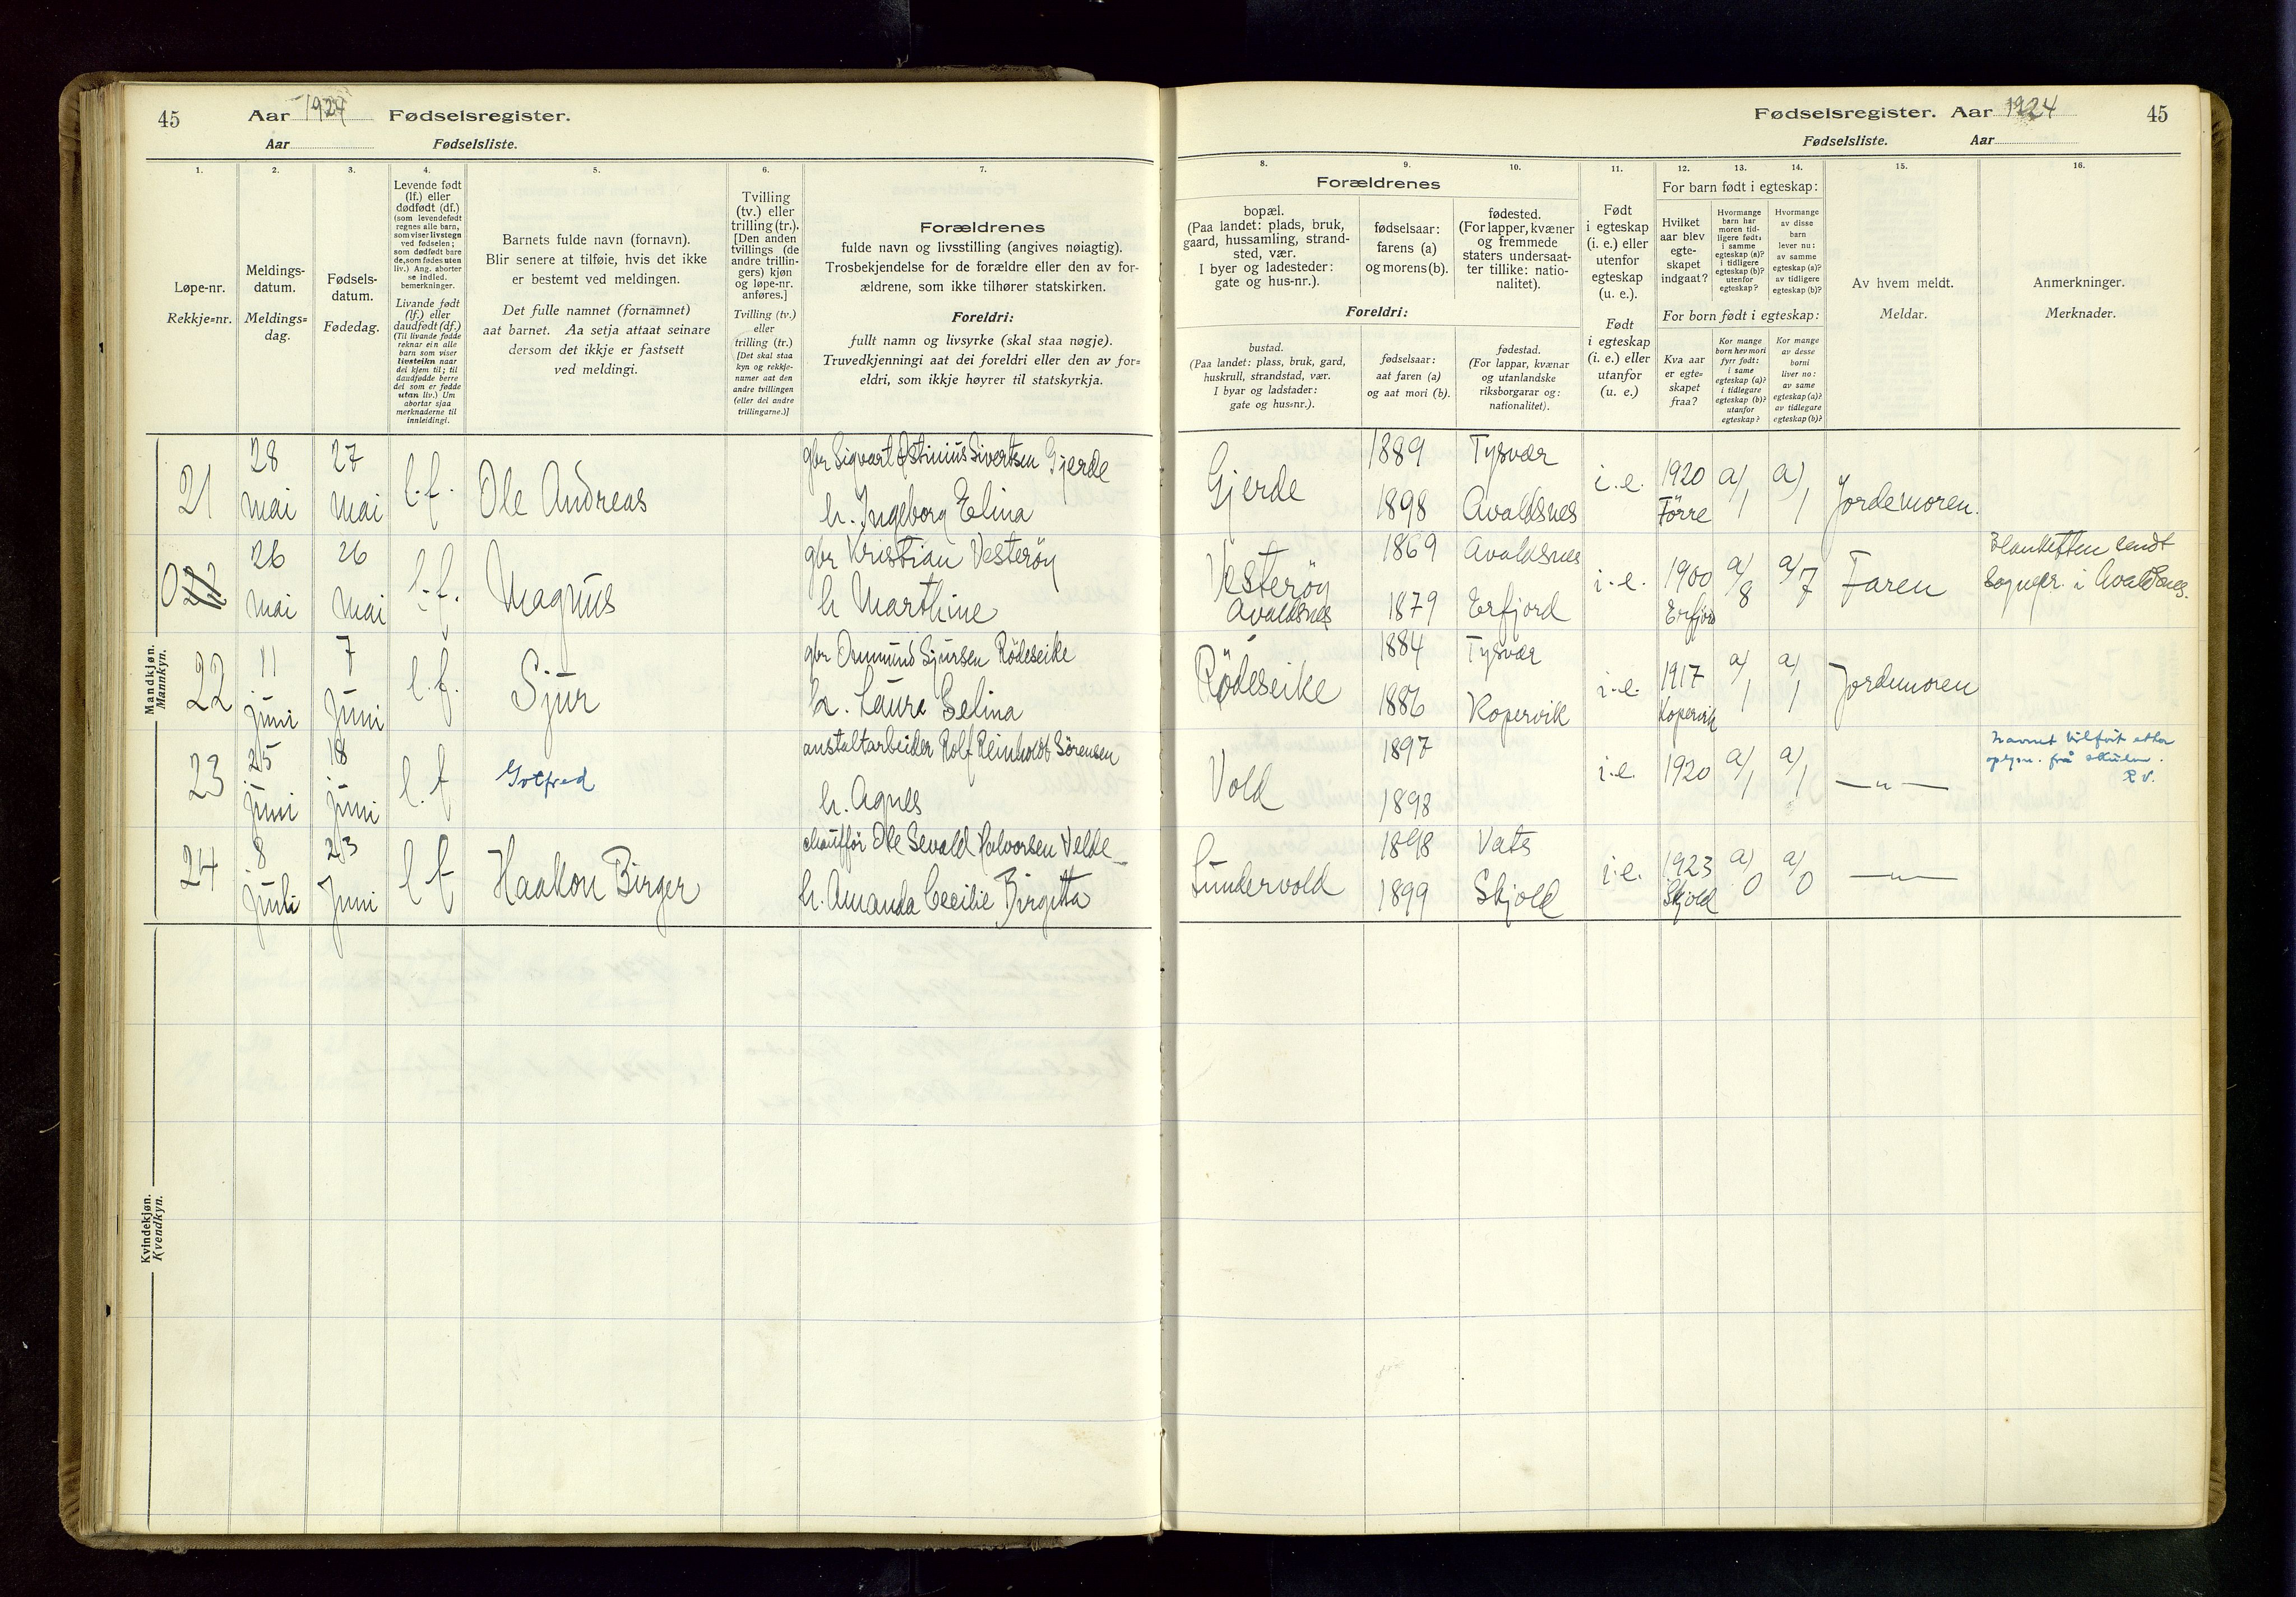 45 Aar 1924 Fødselsregister.
Aar Fødselsliste.
Fødselsregister. Aar 1924 45
Fødselsliste. Aar
1.
Løpe-nr.
Rekkje=nr.
2.
Meldings-
datum.
Meldings=
dag.
3.
Fødsels-
datum.
Fødedag.
4.
Levende født
(lf.) eller
dødfødt (df.)
(som levendefødt
regnes alle barn,
som viser livstegn
ved fødselen;
som dødfødt bare
de, som fødes uten
liv.) Ang. aborter
se indled.
bemerkninger.
Livande født
(lf.) eller
daudfødt (df.)
(Til livande fødde
reknar ein alle
barn som viser
livsteikn naar
dei kjem til; til
daudfødde berre
dei som er fødde
utan liv.) Um
abortar sjaa
merknaderne til
innleidingi.
5.
Barnets fulde navn (fornavn).
Blir senere at tilføie, hvis det ikke
er bestemt ved meldingen.
Det fulle namnet (fornamnet)
aat barnet. Aa setja attaat seinare
dersom det ikkje er fastsett
ved meldingi.
6.
Tvilling
(tv.) eller
trilling (tr.).
[Den anden
tvillings (de
andre trillin-
gers) kjøn
og løpe-nr.
anføres.]
Tvilling (tv.)
eller
trilling (tr.)
[Det skal staa
kyn og rekkje-
numer aat den
andre tvillingen
(eller dei andre
trillingarne.)]
7.
Forældrenes
fulde navn og livsstilling (angives nøiagtig).
Trosbekjendelse for de forældre eller den av for-
ældrene, som ikke tilhører statskirken.
Foreldri:
fullt namn og livsyrke (skal staa nøgje).
Truvedkjenningi aat dei foreldri eller den av for=
eldri, som ikkje høyrer til statskyrkja.
8. 9. 10.
Forældrenes
bopæl.
(Paa landet: plads, bruk,
gaard, hussamling, strand-
sted, vær.
I byer og ladesteder:
gate og hus-nr.).
fødselsaar:
farens (a)
og morens (b).
fødested.
(For lapper, kvæner
og fremmede
staters undersaat-
ter tillike: natio-
nalitet).
Foreldri:
bustad.
(Paa landet: plass, bruk, gard,
huskrull, strandstad, vær.
I byar og ladstader:
gate og hus=nr.).
fødselsaar:
aat faren (a)
og aat mori (b).
fødestad.
(For lappar, kvænar
og utanlandske
riksborgarar og:
nationalitet).
11.
Født
i egteskap
(i. e.) eller
utenfor
egteskap
(u. e.).
Født
i egteskap
(i. e.) eller
utanfor
(u. e.)
12. 13. 14.
For barn født i egteskap:
Hvilket
aar blev
egte-
skapet
indgaat?
Hvormange
barn har
moren tid-
ligere født:
i samme
egteskap (a)?
i tidligere
egteskap (b)?
utenfor
egteskap?
Hvormange
av disse
barn
lever nu:
av samme
egteskap (a)?
av tidligere
egteskap (b)?
For born født i egteskap:
Kva aar
er egte=
skapet
fraa?
Kor mange
born hev mori
fyrr født:
i same
egteskap (a)?
i tidlegare
egteskap (b)?
utanfor
egteskap?
Kor mange
av desse
borni
liver no:
av same
egteskap (a)?
av tidlegare
egteskap (b)?
15.
Av hvem meldt.
Meldar.
16.
Anmerkninger.
Merknader.
Mandkjøn.
Mannkyn.
21 28 mai 27 mai l.f. Ole Andreas
gbr Sigvart Sivertsen Gjerde
h. Ingeborg Elina
Gjerde 1889 Tysvær i.e. 1920 a/1 a/1 Jordemoren.
1898 Avaldsnes Førre
022 26 mai 26 mai l.f. Magnus
gbr Kristian Vesterøy
h Marthine
Vesterøy 1869 Avaldsnes i.e. 1900 a/8 a/7 Faren
Avaldsnes 1879 Erfjord Erfjord
Blanketten sendt
Sognepr. i Avaldsnes.
22 11 juni 7 juni l.f. Sjur
gbr Osmund Sjursen Rødeseike
h. Laura Selina
Rødeseike 1884 Tysvær i.e. 1917 a/1 a/1 Jordemoren
1886 Kopervik Kopervik
23 25 juni 18 juni l.f Gotfred
anstaltarbeider Rolf Reinholdt Sørensen
h. Agnes
Vold 1897 i.e. 1920 a/1 a/1 — " —
1898
Navnet tilført etter
oplysn. frå skulen.
R V.
24 8 juli 23 juni l f Haakon Birger
chauffør Ole Sevald Halvorsen Velde
h. Amanda Cecilie Birgitta
Sundervold 1898 Vats i.e. 1923 a/0 a/0 — " —
1899 Skjold Skjold
Kvindekjøn.
Kvendkyn.